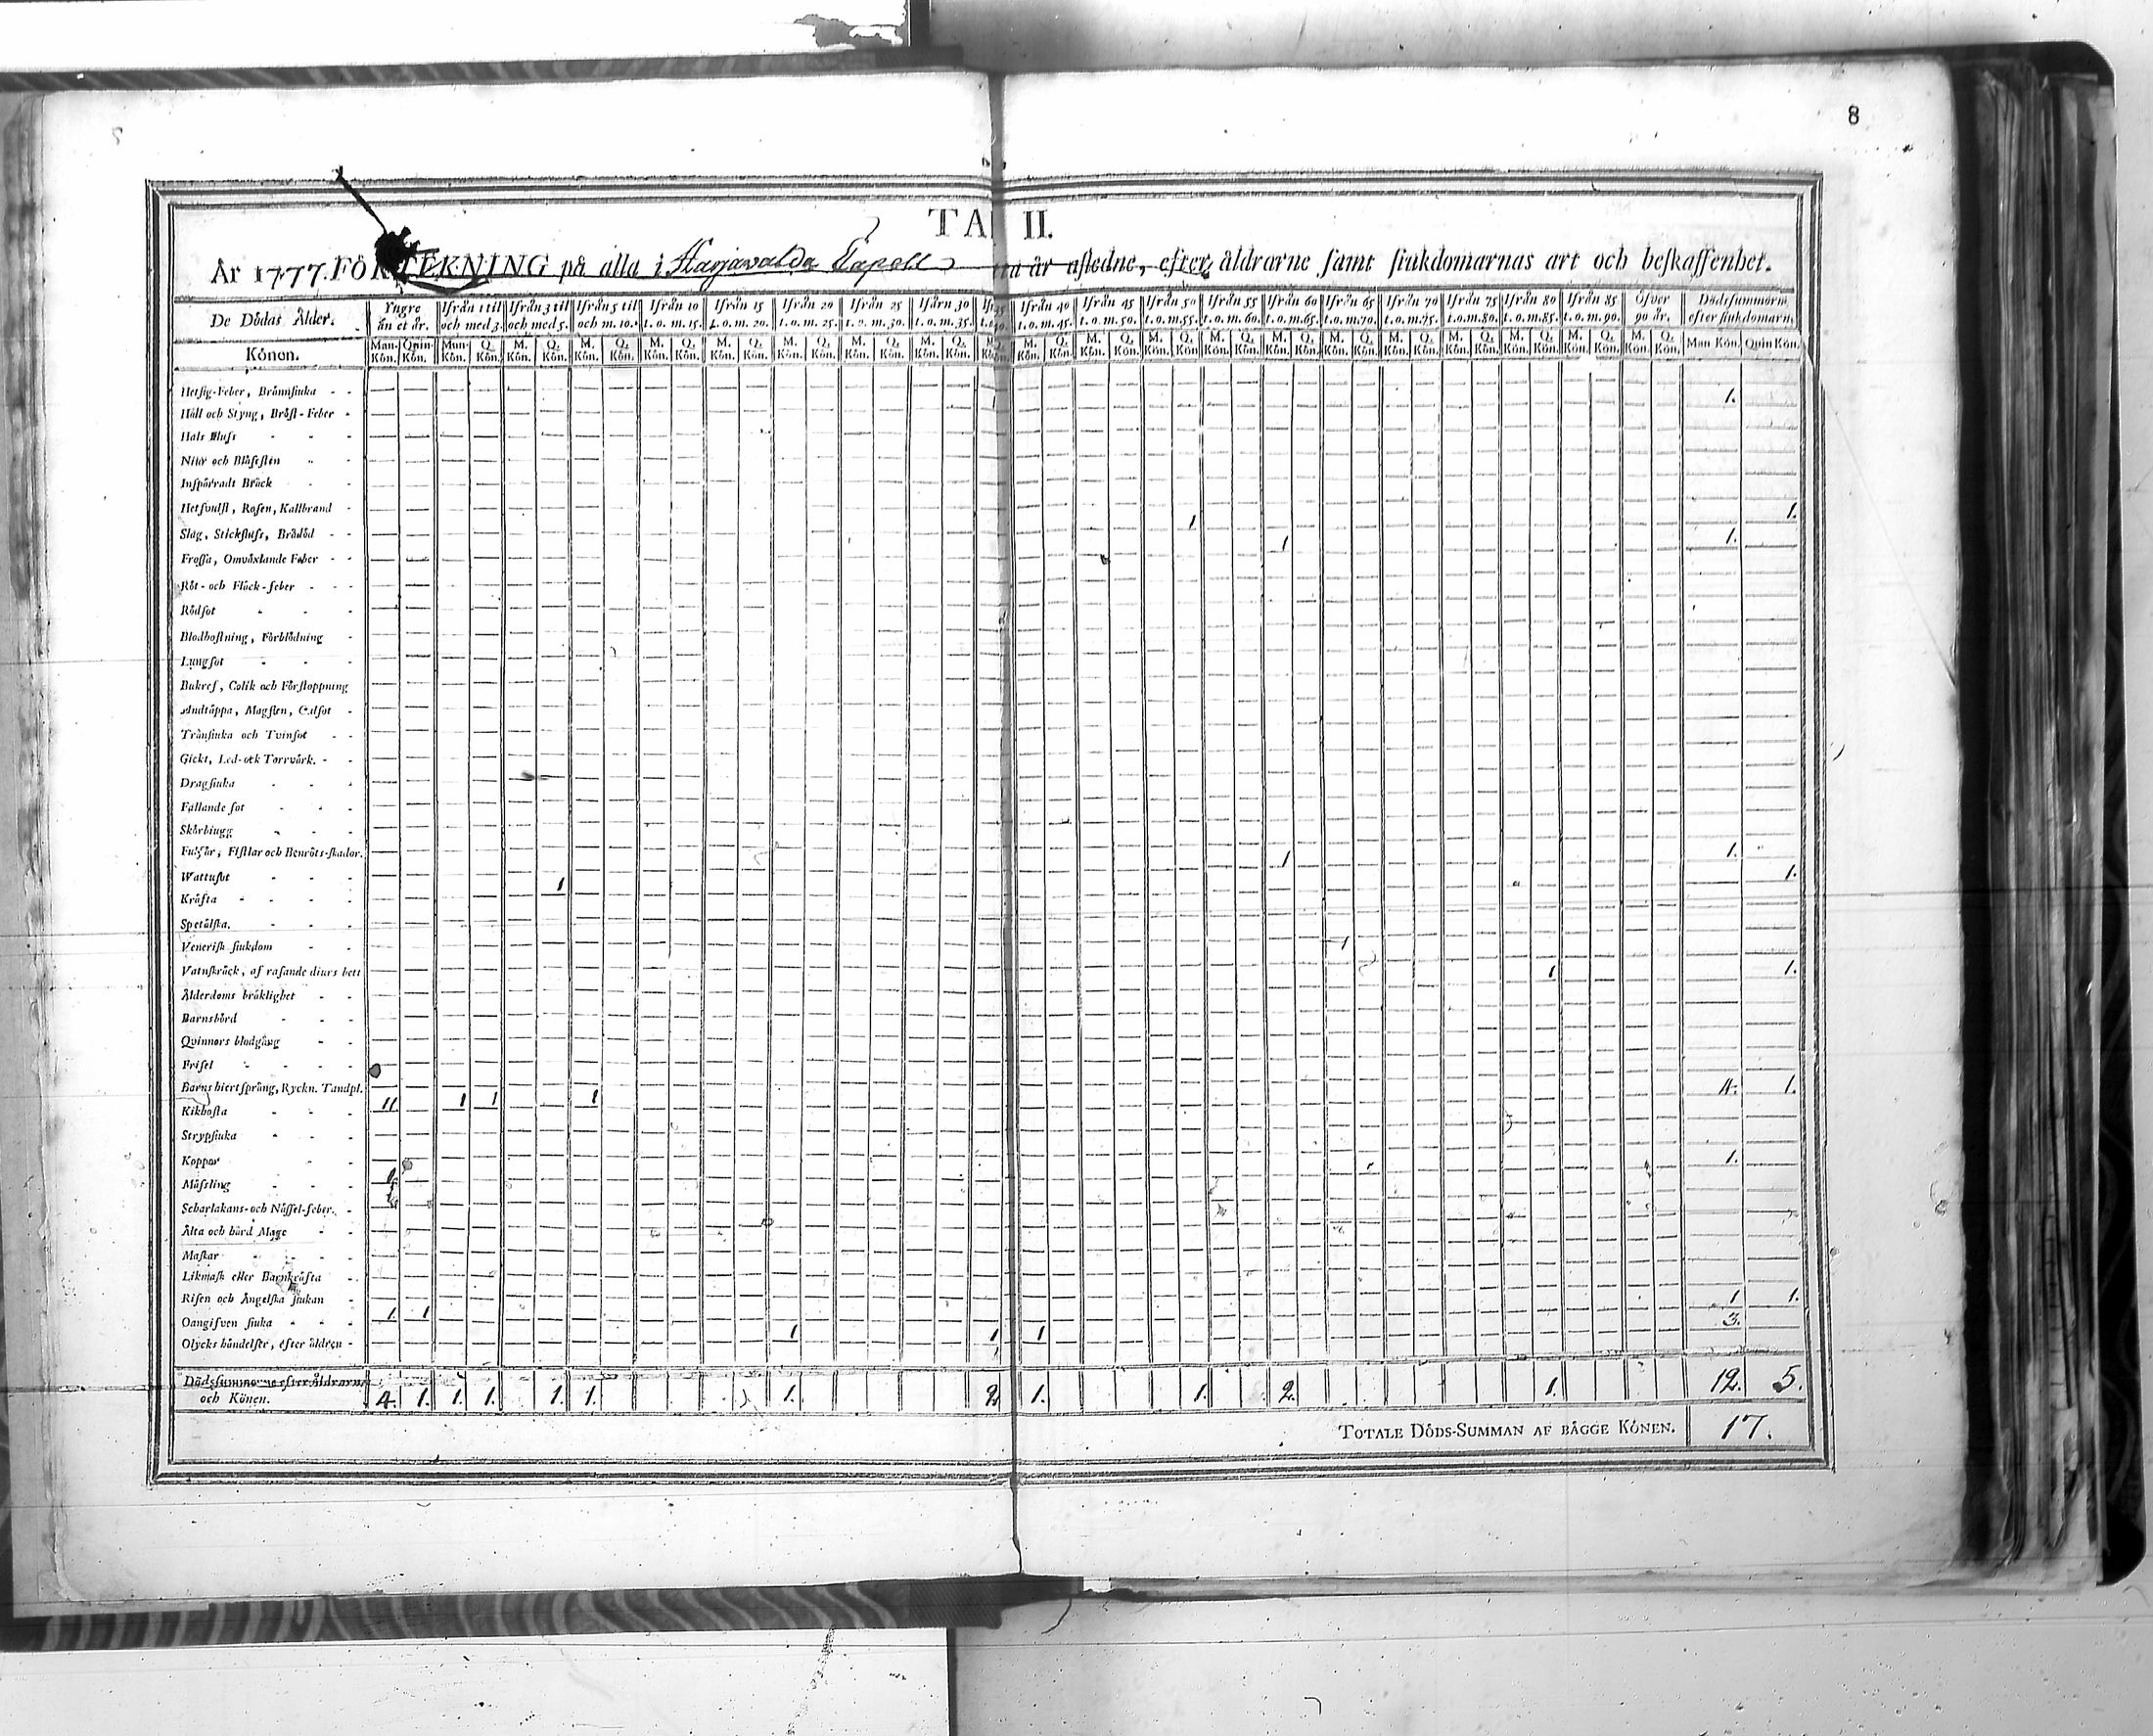 8
TA II.
År 1777. FÖRTEKNING på alla i Harjavalda Capell åldrarne samt siukdomarnas art och beskaffenhet.
De Dödas Ålder. Yngre än et år. Ifrån 1 til och med 3. Ifrån 3 til och med 5. Ifrån 5 til och m. 10. Ifrån 10 t. o. m. 15. Ifrån 15 t. o. m. 20. Ifrån 20 t. o. m. 25. Ifrån 25 t. o. m. 30. Ifårn 30 t. o. m. 35. Ifrån 40 t. o. m. 45. Ifrån 45 t. o. m. 50. Ifrån 50 t. o. m. 55. Ifrån 55 t. o. m. 60. Ifrån 60 t. o. m. 65. Ifrån 65 t. o. m. 70. Ifrån 70 t. o. m. 75. Ifrån 75 t. o. m. 80. Ifrån 80 t. o. m. 85. Ifrån 85 t. o. m. 90. Öfver 90 år. Dödssummorne efter siukdomarn.
Könen. Man. Kön. Qvin. Kön. Man. Kön. Q. Kön. M. Kön. Q. Kön. M. Kön. Q. Kön. M. Kön. Q. Kön. M. Kön. Q. Kön. M. Kön. Q. Kön. M. Kön. Q. Kön. M. Kön. Q. Kön. M. Kön. Q. Kön. M. Kön. Q. Kön. M. Kön. Q. Kön. M. Kön. Q. Kön. M. Kön. Q. Kön. M. Kön. Q. Kön. M. Kön. Q. Kön. M. Kön. Q. Kön. M. Kön. Q. Kön. M. Kön. Q. Kön. M. Kön. Q. Kön. Man Kön. Quin Kön.
Hetsig-Feber, Brännsiuka
Håll och Styng, Bröst-Feber 1.
Hals Fluss
Niur och Blåsesten
Inspärradt Bråck
Hetsvulst, Rosen, Kallbrand
Slag, Stickfluss, Brådöd 1 1.
Frossa, Omväxlande Feber 1 1.
Röt- och Fläck-feber
Rödsot
Blodhostning, Förblödning
Lungsot
Bukref, Colik och Förstoppning
Andtäppa, Magsten, Gulsot
Trånsiuka och Tvinsot
Gickt, Led- ock Torrvärk.
Dragsiuka
Fallande sot
Skörbiugg
Fulsår, Fistlar och Benröts-skador.
Wattusot 1 1.
Kräfta 1 1.
Spetälska.
Venerisk siukdom
Vatnskräck, af rasande diurs bett 1
Ålderdoms bräklighet 1 1.
Barnsbörd
Qvinnors blodgång
Frisel
Barns hiertsprång, Ryckn. Tandpl.
Kikhosta 11 1 1 1 4. 1.
Strypsiuka
Koppor
Mässling 1 1.
Scharlakans- och Nässel-feber.
Älta och hård Mage
Maskar
Likmask eller Barnkräfta
Risen och Ängelska siukan
Oangifven siuka 1. 1 1 1.
Olycks händelser, efter åldren 1 1 1 3.
Dödssummorne efter Åldrarna och Könen. 4. 1. 1. 1. 1. 1. 1. 2. 1. 1. 2. 1. 12. 5.
TOTALE DÖDS-SUMMAN AF BÄGGE KÖNEN. 17.